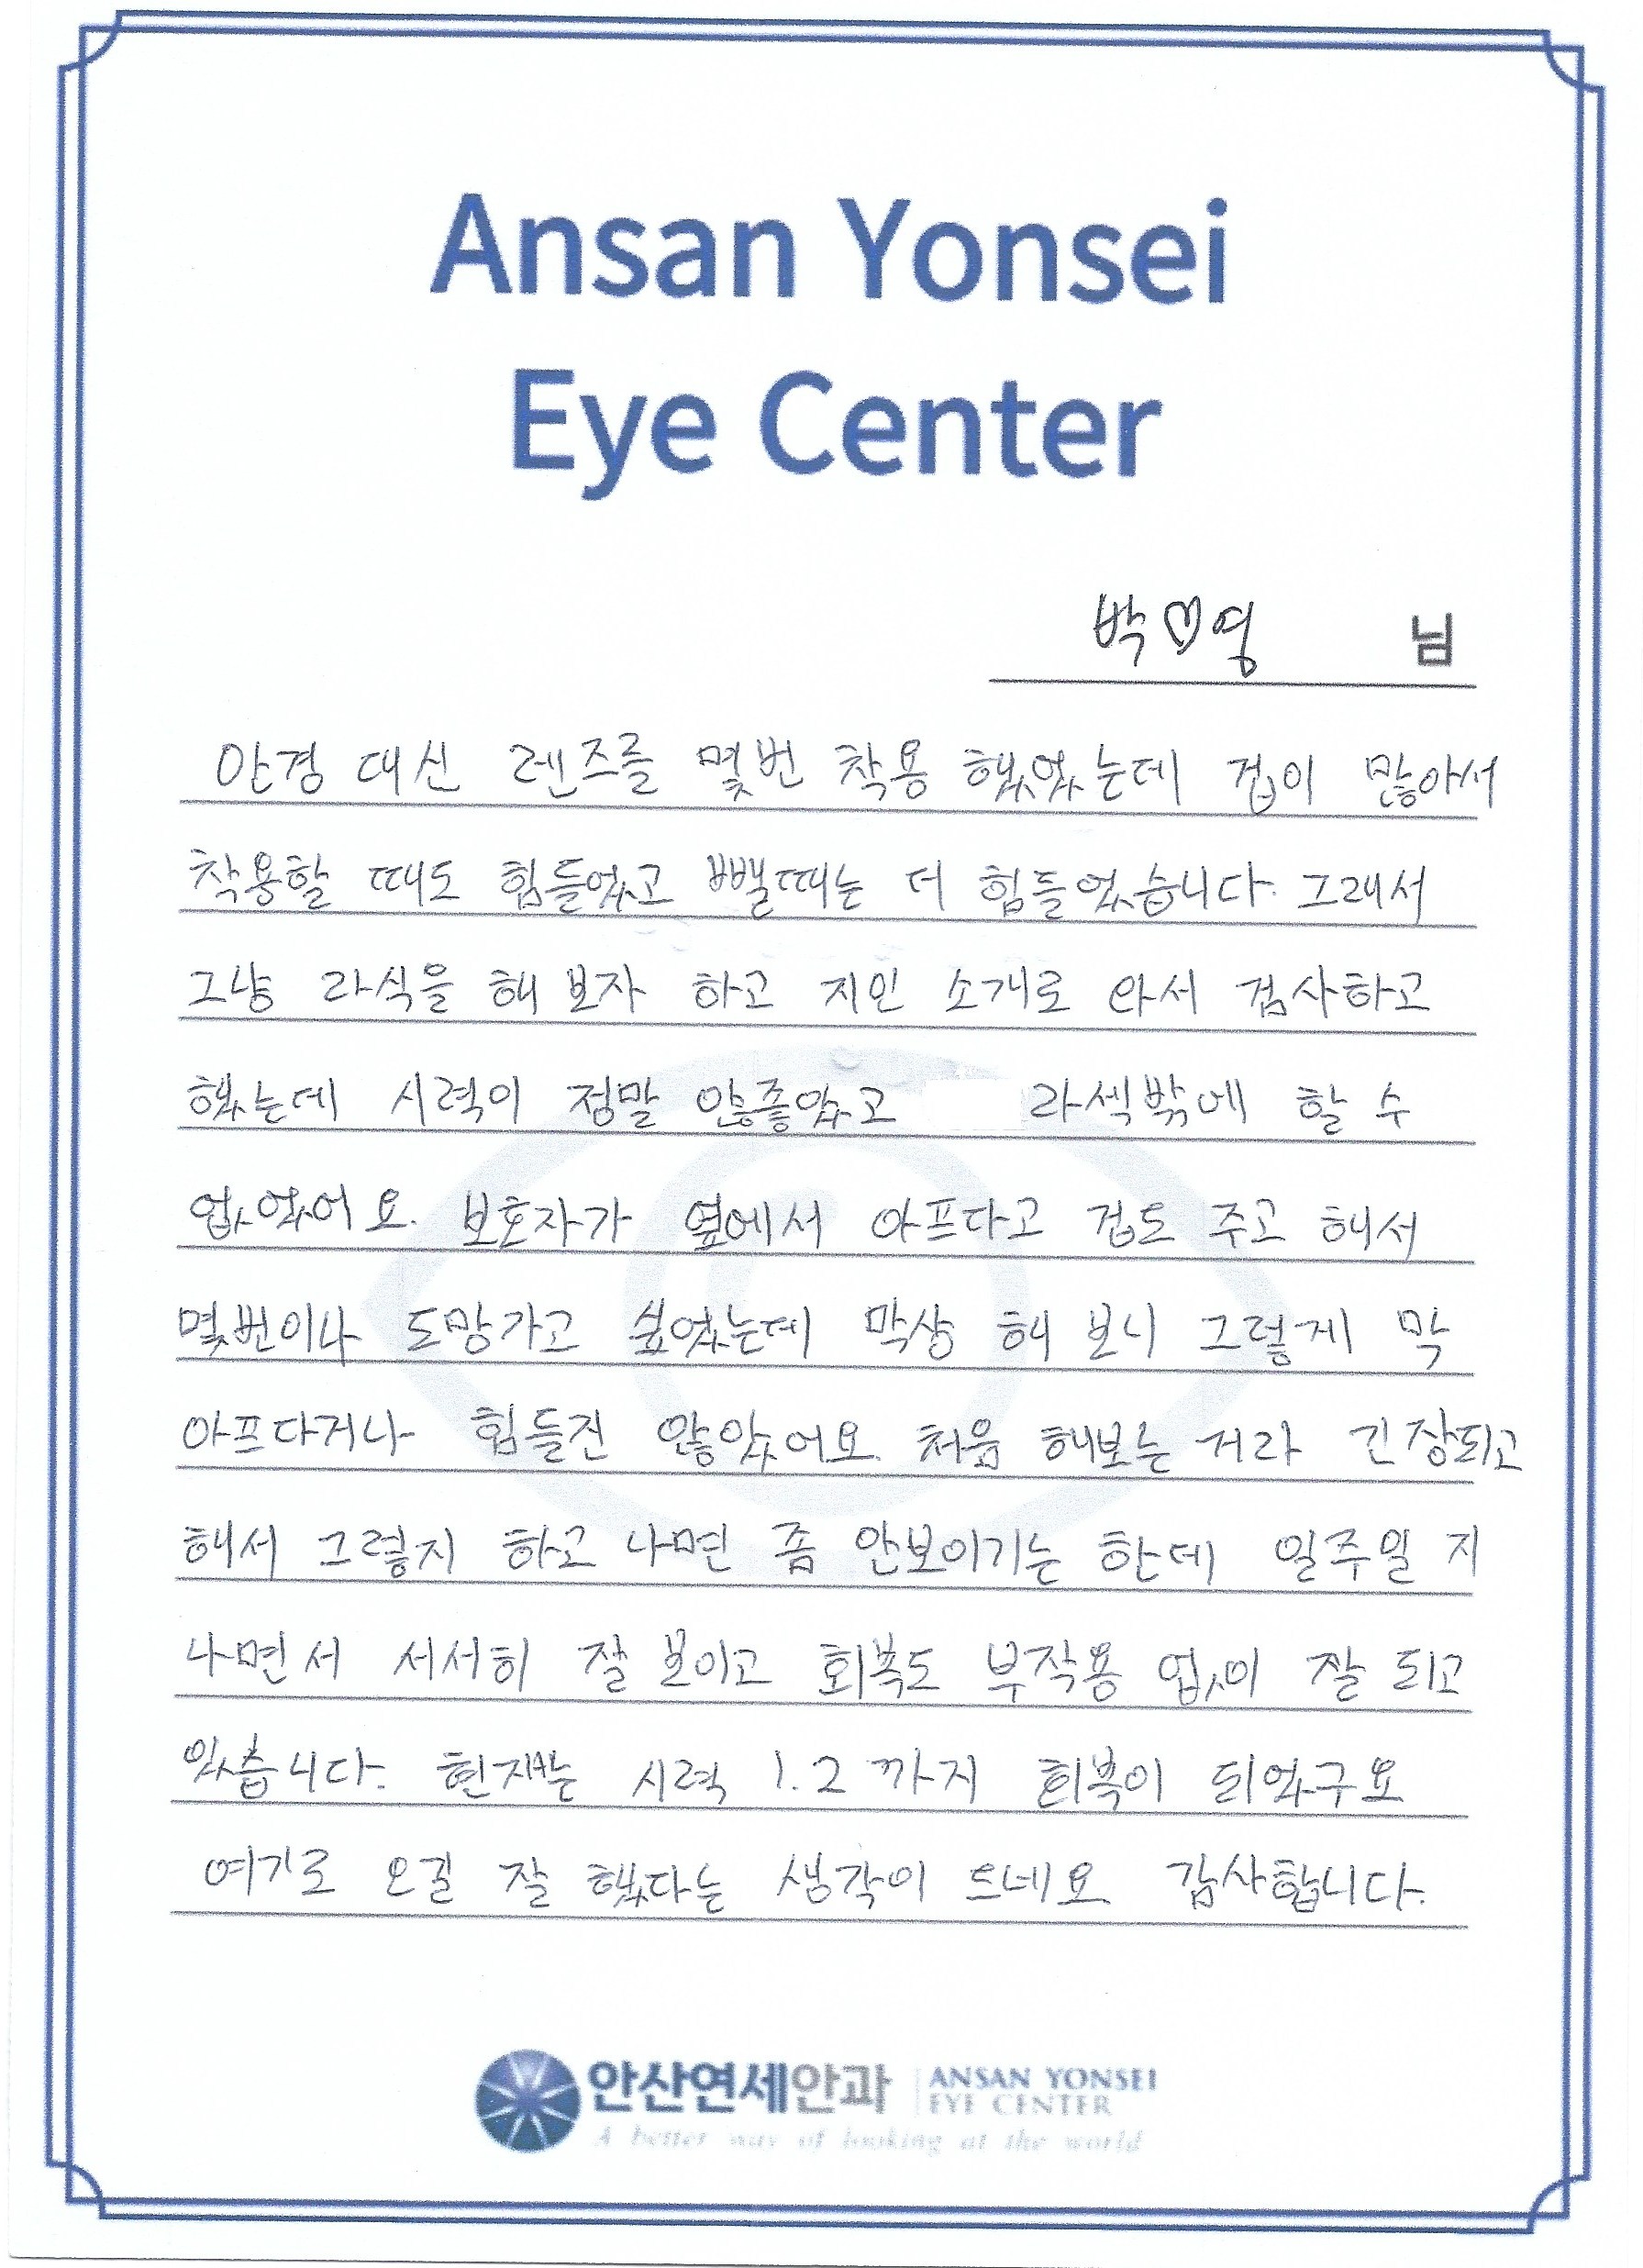 Ansan Yonsei
Eye Center
박♡영 님
안경 대신 렌즈를 몇번 착용 했었는데 겁이 많아서
착용할 때도 힘들었고 뺄때는 더 힘들었습니다. 그래서
그냥 라식을 해 보자 하고 지인 소개로 와서 검사하고
했는데 시력이 정말 않좋았고 라섹밖에 할 수
없었어요. 보호자가 옆에서 아프다고 겁도 주고 해서
몇번이나 도망가고 싶었는데 막상 해 보니 그렇게 막
아프다거나 힘들진 않았어요. 처음 해보는 거라 긴장되고
해서 그렇지 하고 나면 좀 안보이기는 한데 일주일 지
나면서 서서히 잘 보이고 회복도 부작용 없이 잘 되고
있습니다. 현재는 시력 1.2 까지 회복이 되었구요
여기로 오길 잘 했다는 생각이 드네요. 감사합니다.
안산연세안과 ANSAN YONSEI
EYE CENTER
A better way of looking at the world